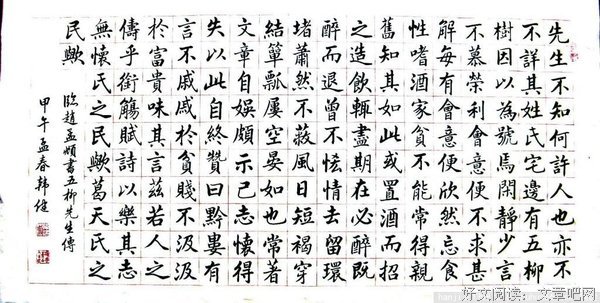 先生不知何許人也亦不
不詳其姓氏宅邊有五柳
樹因以為號焉閑靜少言
不慕榮利會意便不求甚
解每有會意便欣然忘食
性嗜酒家貧不能常得親
舊知其如此或置酒而招
之造飲輒盡期在必醉既
醉而退曾不恡情去留環
堵蕭然不蔽風日短褐穿
結簞瓢屢空晏如也常著
文章自娛頗示己志懷得
失以此自終贊曰黔婁有
言不戚戚於貧賤不汲汲
於富貴味其言茲若人之
儔乎銜觴賦詩以樂其志
無懷氏之民歟葛天氏之
民歟
臨趙孟頫書五柳先生傳
甲午孟春韩健
好文阅读：文章吧网